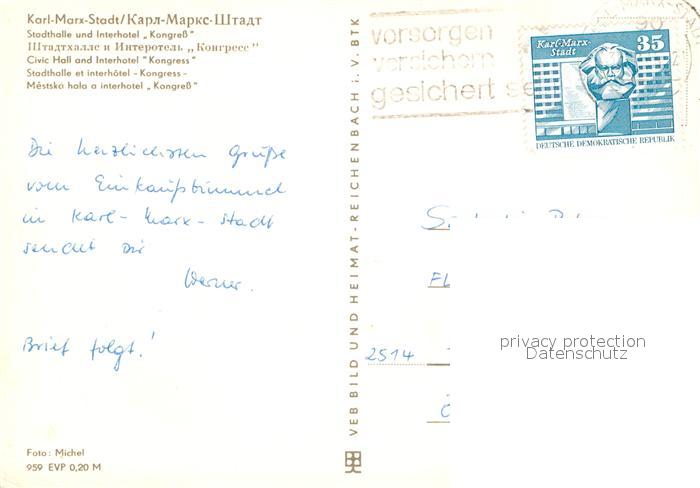 Karl-Marx-Stadt/Карл-Маркс-Штадт
Stadthalle und Interhotel „Kongreß"
Штадтхалле и Интеротель „Конгресс"
Civic Hall and Interhotel "Kongress"
Stadthalle et interhôtel - Kongress -
Městská hala a interhotel „Kongreß"
Die herzlichsten Grüße
vom Einkaufsbummel
in Karl-Marx-Stadt
sendet Dir
Werner.
Brief folgt!
Foto: Michel
959 EVP 0,20 M
VEB BILD UND HEIMAT-REICHENBACH i. V. BTK
vorsorgen
versichern
gesichert
Karl-Marx-Stadt 35
DEUTSCHE DEMOKRATISCHE REPUBLIK
FL
2514
privacy protection
Datenschutz